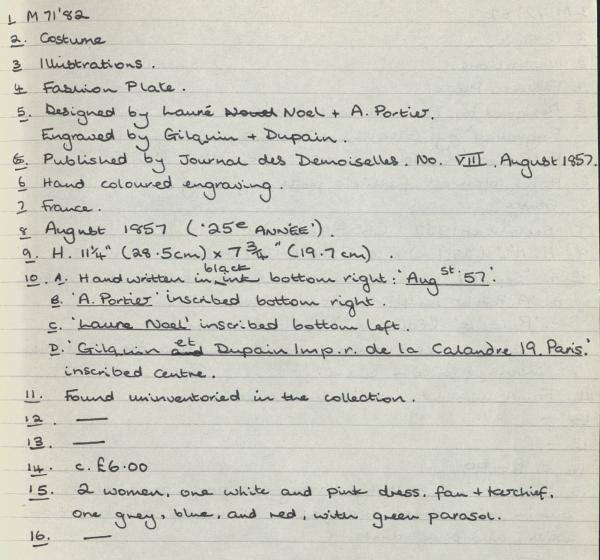 1 M 71'82
2. Costume
3 Illustrations.
4 Fashion Plate.
5. Designed by Lauré Noel Noel + A. Portier.
Engraved by Gilquin + Dupain.
6. Published by Journal des Demoiselles. No. VIII. August 1857.
6 Hand coloured engraving.
7 France.
8 August 1857 ('25e ANNÉE').
9. H. 11¼" (28.5cm) x 7 3/4" (19.7cm).
10. A. Handwritten in black ink bottom right: 'Aug st. 57'.
B. 'A. Portier' inscribed bottom right.
C. 'Laure Noel' inscribed bottom left.
D. 'Gilquin and et Dupain Imp. r. de la Calandre 19. Paris.'
inscribed centre.
11. Found uninventoried in the collection.
12. —
13. —
14. c. £6.00
15. 2 women, one white and pink dress, fan + kerchief,
one grey, blue, and red, with green parasol.
16. —